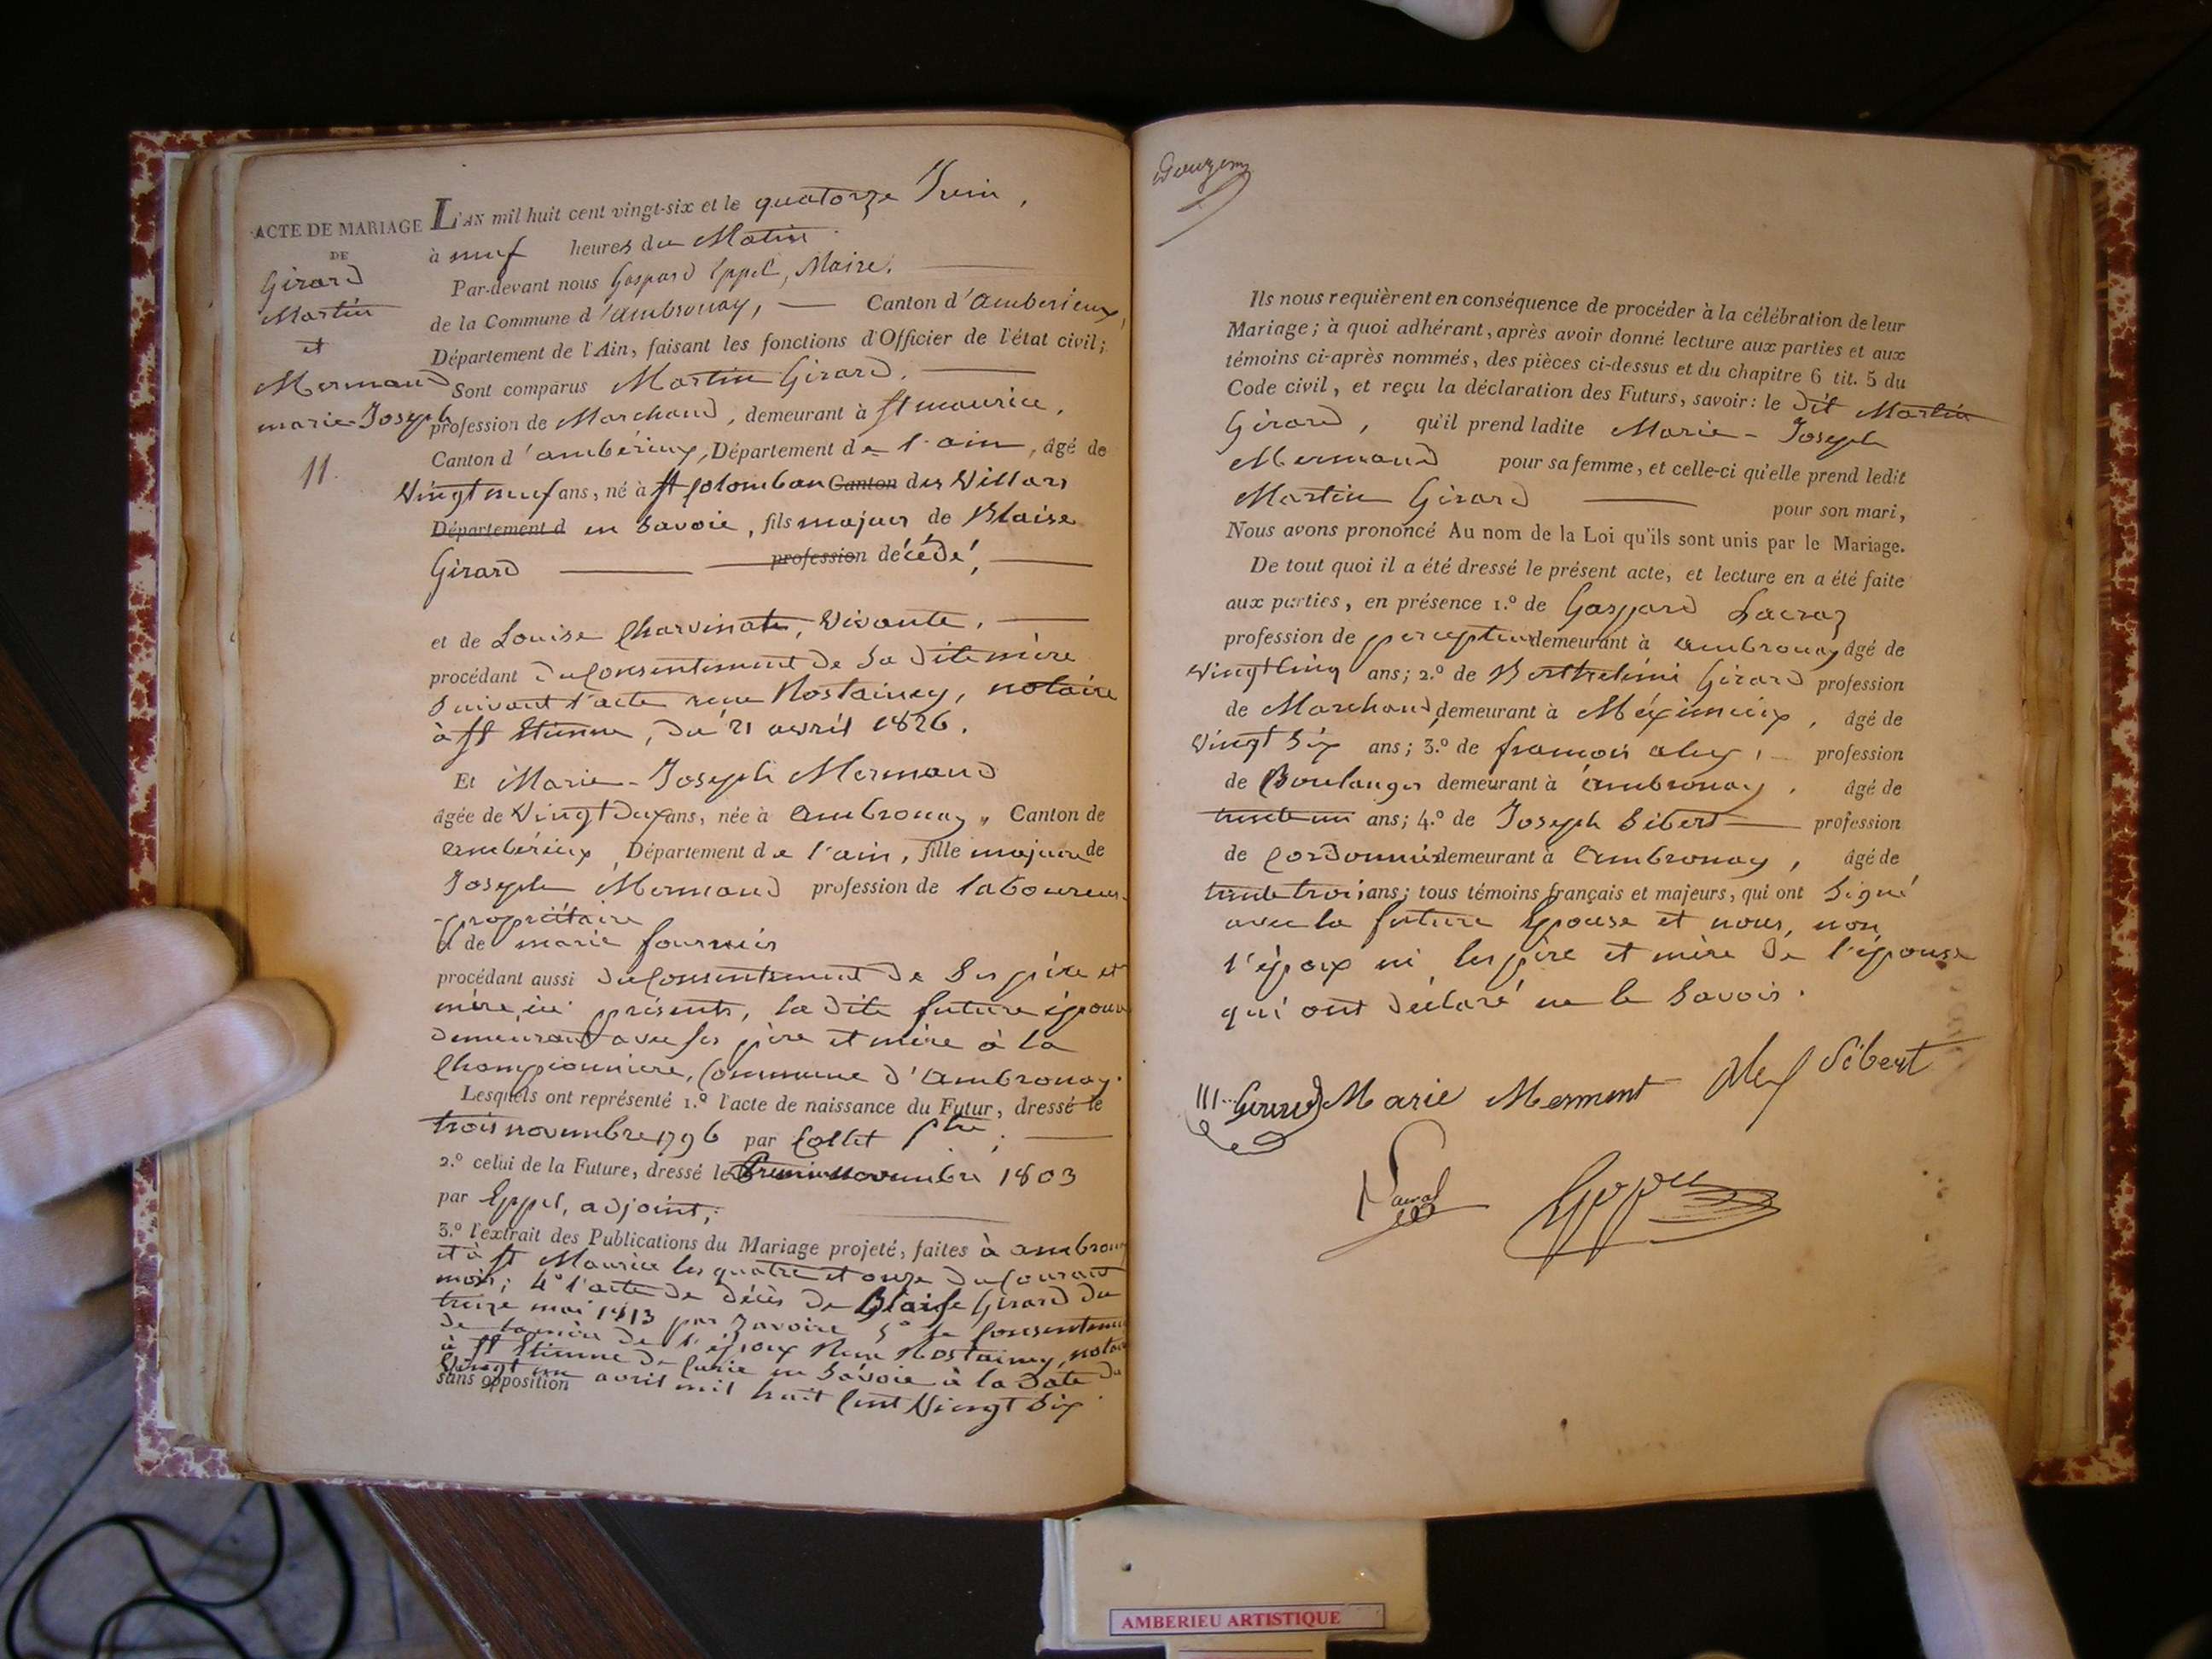 ACTE DE MARIAGE
DE
Girard
Martin
et
Mermand
marie-Joseph
11.
L'AN mil huit cent vingt-six et le quatorze Juin,
à neuf heures du Matin.
Par-devant nous Gaspard Eppel, Maire.
de la Commune d'ambronay, Canton d'amberieux,
Département de l'Ain, faisant les fonctions d'Officier de l'état civil;
Sont comparus Martin Girard.
profession de Marchand, demeurant à st maurice,
Canton d'ambérieux, Département de l'ain, âgé de
Vingt neuf ans, né à st Colomban Canton des Villars
Département d en Savoie, fils majeur de Blaise
Girard profession décédé,
et de Louise Charvinate, Vivante,
procédant du Consentement de Sa dite mère
Suivant l'acte reçu Rostainey, notaire
à st Etienne, du 21 avril 1826.
Et Marie-Joseph Mermand
âgée de Vingt Deux ans, née à Ambronay, Canton de
ambérieux, Département de l'ain, fille majeure de
Joseph Mermand profession de laboureur-
-propriétaire
et de marie fournier
procédant aussi du Consentement de Ses père et
mère, ici présents, la dite future épouse
Demeurant avec ses père et mère à la
Championniere, Commune d'Ambronay.
Lesquels ont représenté 1.º l'acte de naissance du Futur, dressé le
trois novembre 1796 par Collet ptre;
2.º celui de la Future, dressé le Premier novembre 1803
par Eppel, adjoint;
3.º l'extrait des Publications du Mariage projeté, faites à ambronay
et à st Maurice les quatre et onze du Courant
mois; 4º l'acte de décès de Blaise Girard du
treize mai 1813 par 5º le Consentement
de la mère de l'époux Reçu Rostainey, notaire
à st Etienne de Cuine en Savoie à la Date du
Vingt un avril mil huit Cent Vingt Six.
sans opposition
Ils nous requièrent en conséquence de procéder à la célébration de leur
Mariage; à quoi adhérant, après avoir donné lecture aux parties et aux
témoins ci-après nommés, des pièces ci-dessus et du chapitre 6 tit. 5 du
Code civil, et reçu la déclaration des Futurs, savoir: le dit Martin
Girard, qu'il prend ladite Marie-Joseph
Mermand pour sa femme, et celle-ci qu'elle prend ledit
Martin Girard pour son mari,
Nous avons prononcé Au nom de la Loi qu'ils sont unis par le Mariage.
De tout quoi il a été dressé le présent acte, et lecture en a été faite
aux parties, en présence 1.º de Gaspard Lacraz
profession de percepteur demeurant à ambronay âgé de
Vingt Cinq ans; 2.º de Berthelémi Girard profession
de Marchand demeurant à Méximieux, âgé de
Vingt Six ans; 3.º de françois aley, profession
de Boulanger demeurant à ambronay, âgé de
trente un ans; 4.º de Joseph Sibert profession
de Cordonnier demeurant à Ambronay, âgé de
trente trois ans; tous témoins français et majeurs, qui ont Signé
avec la future Epouse et nous, non
l'époux ni les père et mère de l'épouse
qui ont déclaré ne le Savoir.
Girard Marie Mermont Aley Sibert
AMBERIEU ARTISTIQUE